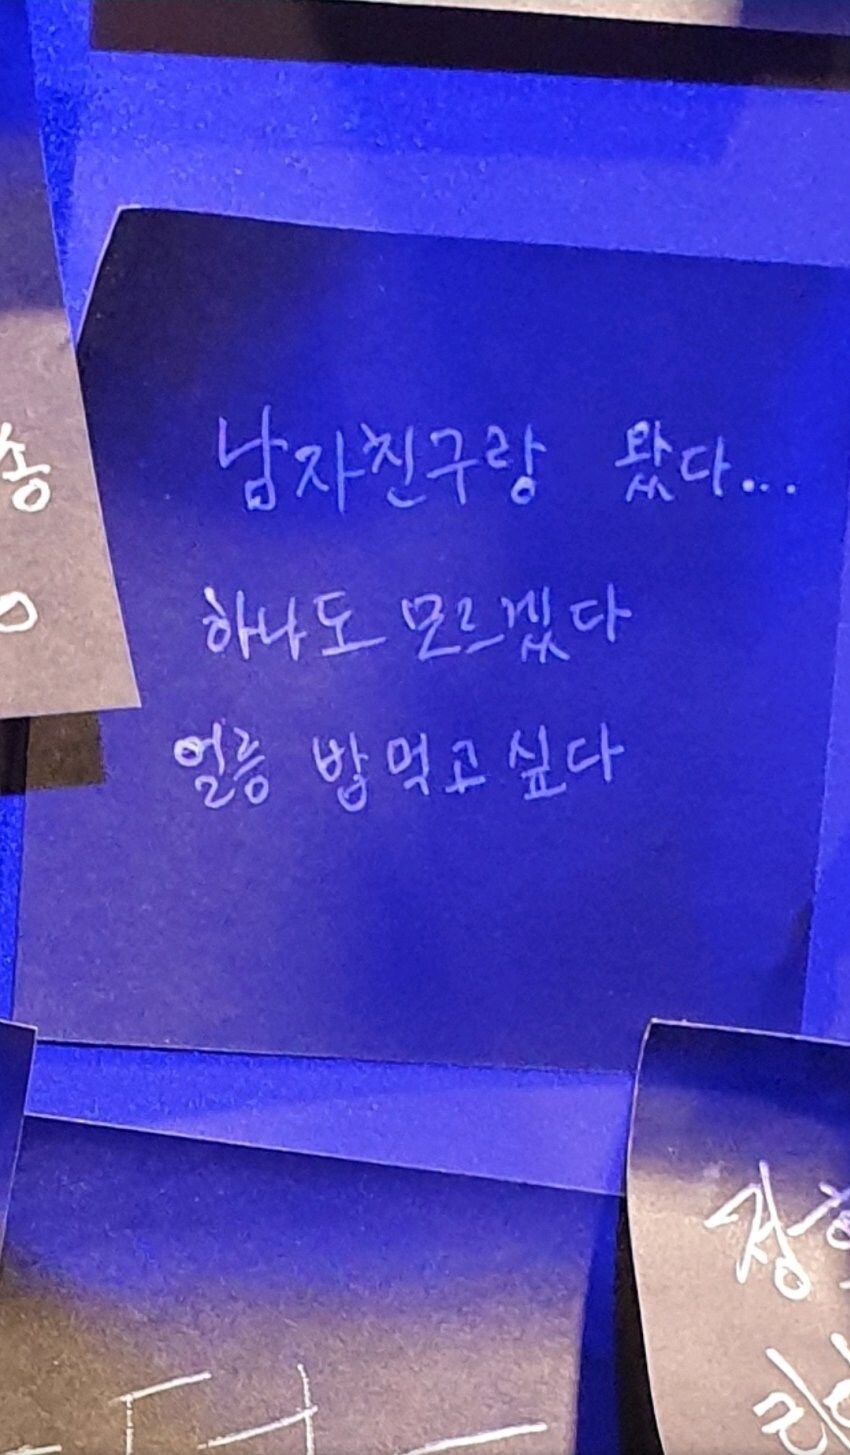 송
남자친구랑 왔다...
하나도 모르겠다
얼릉 밥먹고 싶다
정